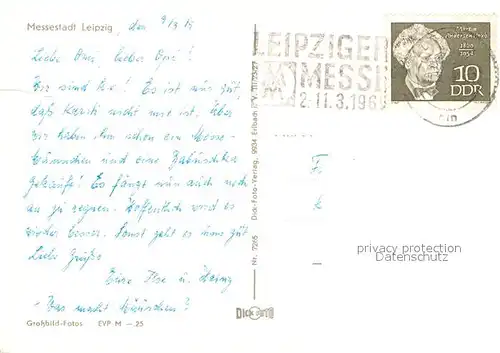 Messestadt Leipzig, den 9/3 69
Liebe Omi, lieber Opi!
Wir sind hier! Es ist nur gut
daß Kersti nicht mit ist. Aber
wir haben ihm schon ein Messe-
männchen und eine Babuschka
gekauft! Es fängt nun auch noch
an zu regnen. Hoffentlich wird es
wieder besser. Sonst geht es uns gut
Liebe Grüße
Eure Ilse u. Heinz
Was macht Mäuschen?
Großbild-Fotos EVP M —.25
Nr. 7265 Dick-Foto-Verlag, 9934 Erlbach i. V. III/23/27
LEIPZIGER
MESSE
2.-11.3.1969
Martin Andersen Nexö
1869
1954
10
DDR
privacy protection
Datenschutz